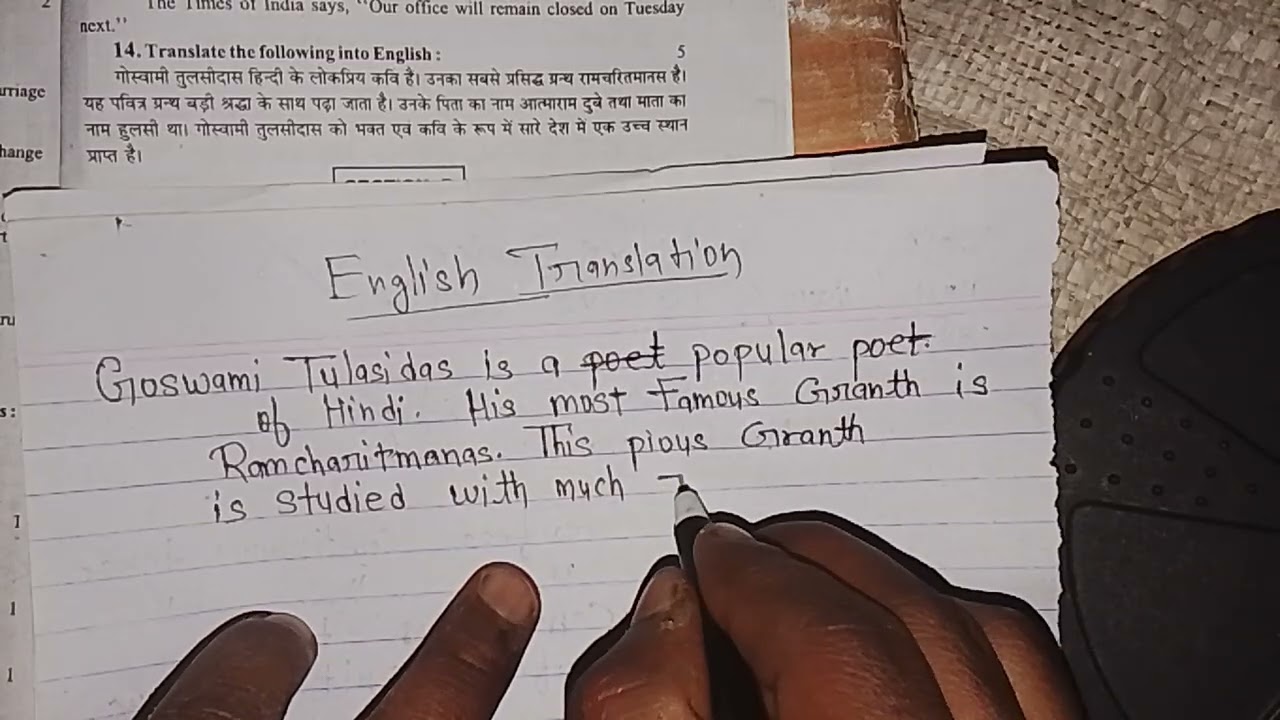 2
The Times of India says, "Our office will remain closed on Tuesday
next."
14. Translate the following into English : 5
गोस्वामी तुलसीदास हिन्दी के लोकप्रिय कवि है। उनका सबसे प्रसिद्ध ग्रन्थ रामचरितमानस है।
यह पवित्र ग्रन्थ बड़ी श्रद्धा के साथ पढ़ा जाता है। उनके पिता का नाम आत्माराम दुबे तथा माता का
नाम हुलसी था। गोस्वामी तुलसीदास को भक्त एवं कवि के रूप में सारे देश में एक उच्च स्थान
प्राप्त है।
rriage
hange
s:
1
1
English Translation
Goswami Tulasidas is a poet popular poet.
of Hindi. His most Famous Granth is
Ramcharitmanas. This pious Granth
is studied with much